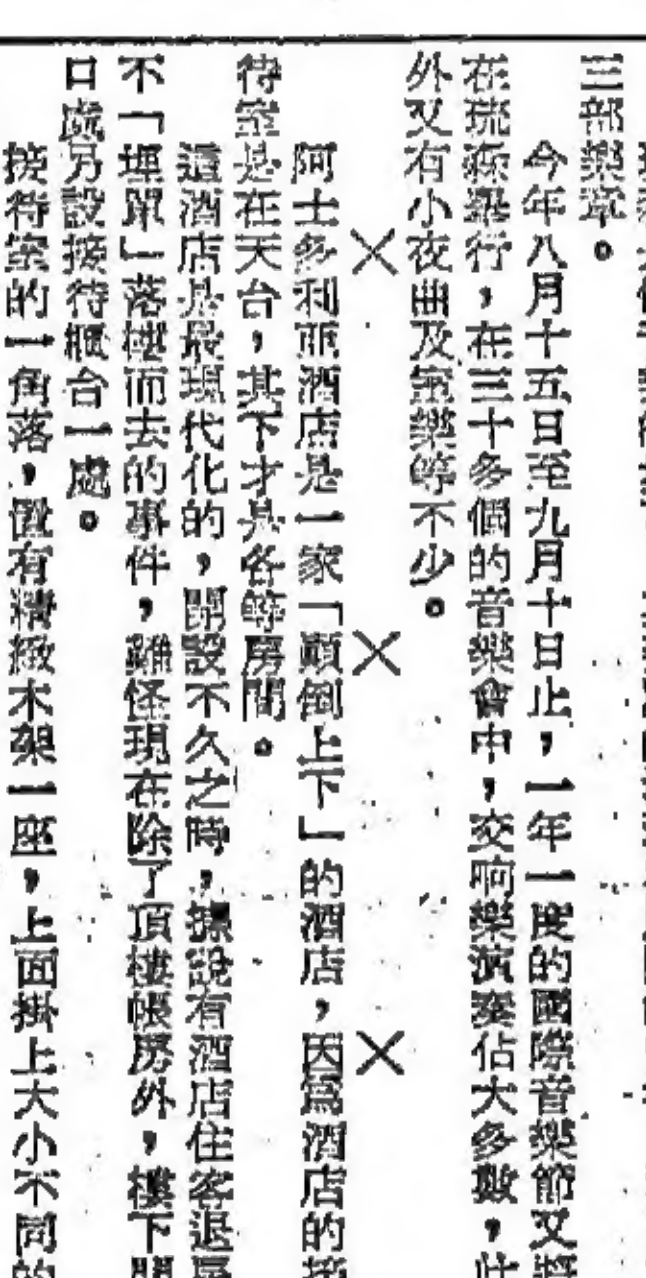 三部樂章。
今年八月十五日至九月十日止，一年一度的國際音樂節又將
在琉森舉行，在三十多個的音樂會中，交响樂演奏佔大多數，此
外又有小夜曲及室樂等不少。
× × ×
阿士多利亞酒店是一家「顚倒上下」的酒店，因爲酒店的接
待室是在天台，其下才是各等房間。
這酒店是最現代化的，開設不久之時，據說有酒店住客退房
不「埋單」落樓而去的事件，難怪現在除了頂樓帳房外，樓下
口處另設接待櫃台一處。
接待室的一角落，置有精緻木架一座，上面掛上大小不同的